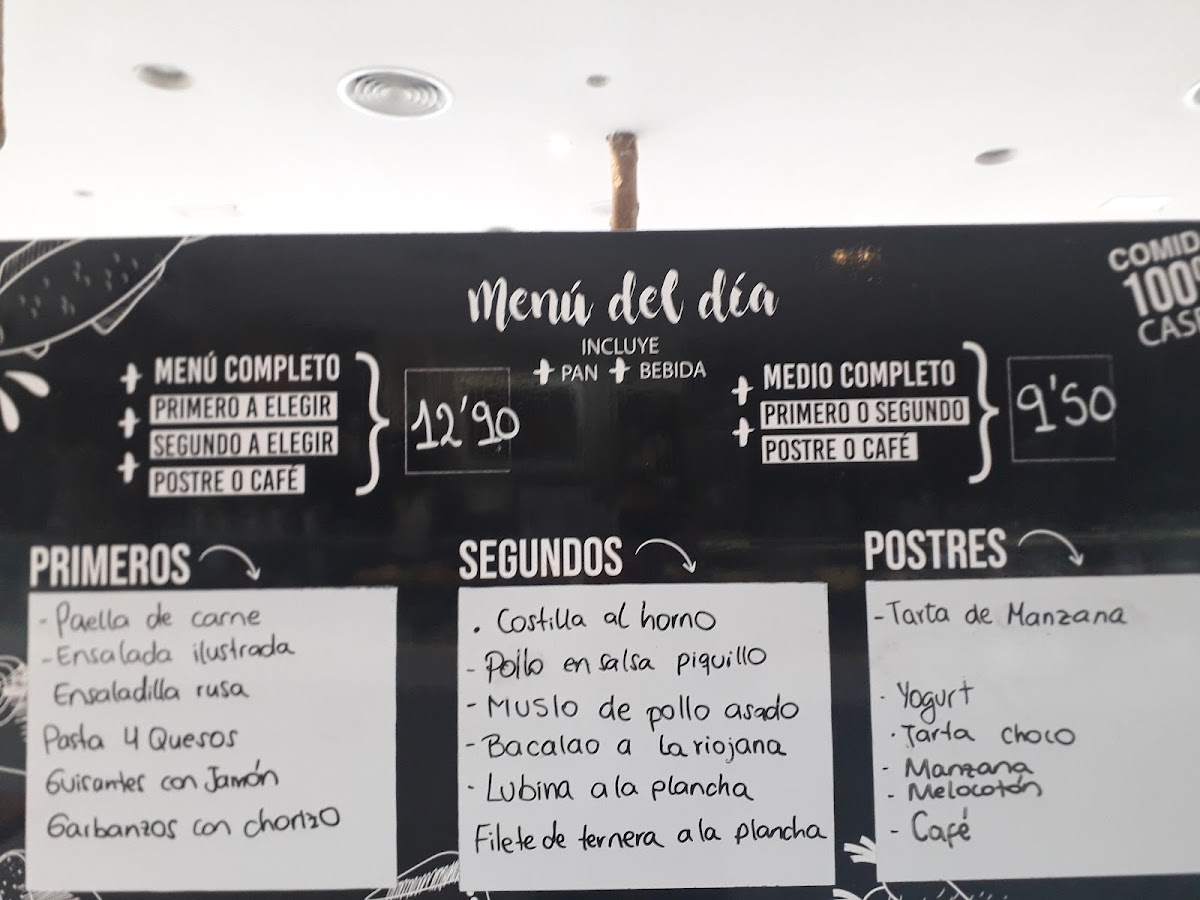 Menú del día
INCLUYE
+ PAN + BEBIDA
+ MENÚ COMPLETO
+ PRIMERO A ELEGIR
+ SEGUNDO A ELEGIR
POSTRE O CAFÉ
12'90
+ MEDIO COMPLETO
+ PRIMERO O SEGUNDO
POSTRE O CAFÉ
9'50
COMID
100
CAS
PRIMEROS
- Paella de carne
- Ensalada ilustrada
Ensaladilla rusa
Pasta 4 Quesos
Guisantes con Jamón
Garbanzos con chorizo
SEGUNDOS
. Costilla al horno
- Pollo en salsa piquillo
- Muslo de pollo asado
- Bacalao a la riojana
- Lubina a la plancha
Filete de ternera a la plancha
POSTRES
- Tarta de Manzana
- Yogurt
. Tarta choco
- Manzana
- Melocotón
- Café